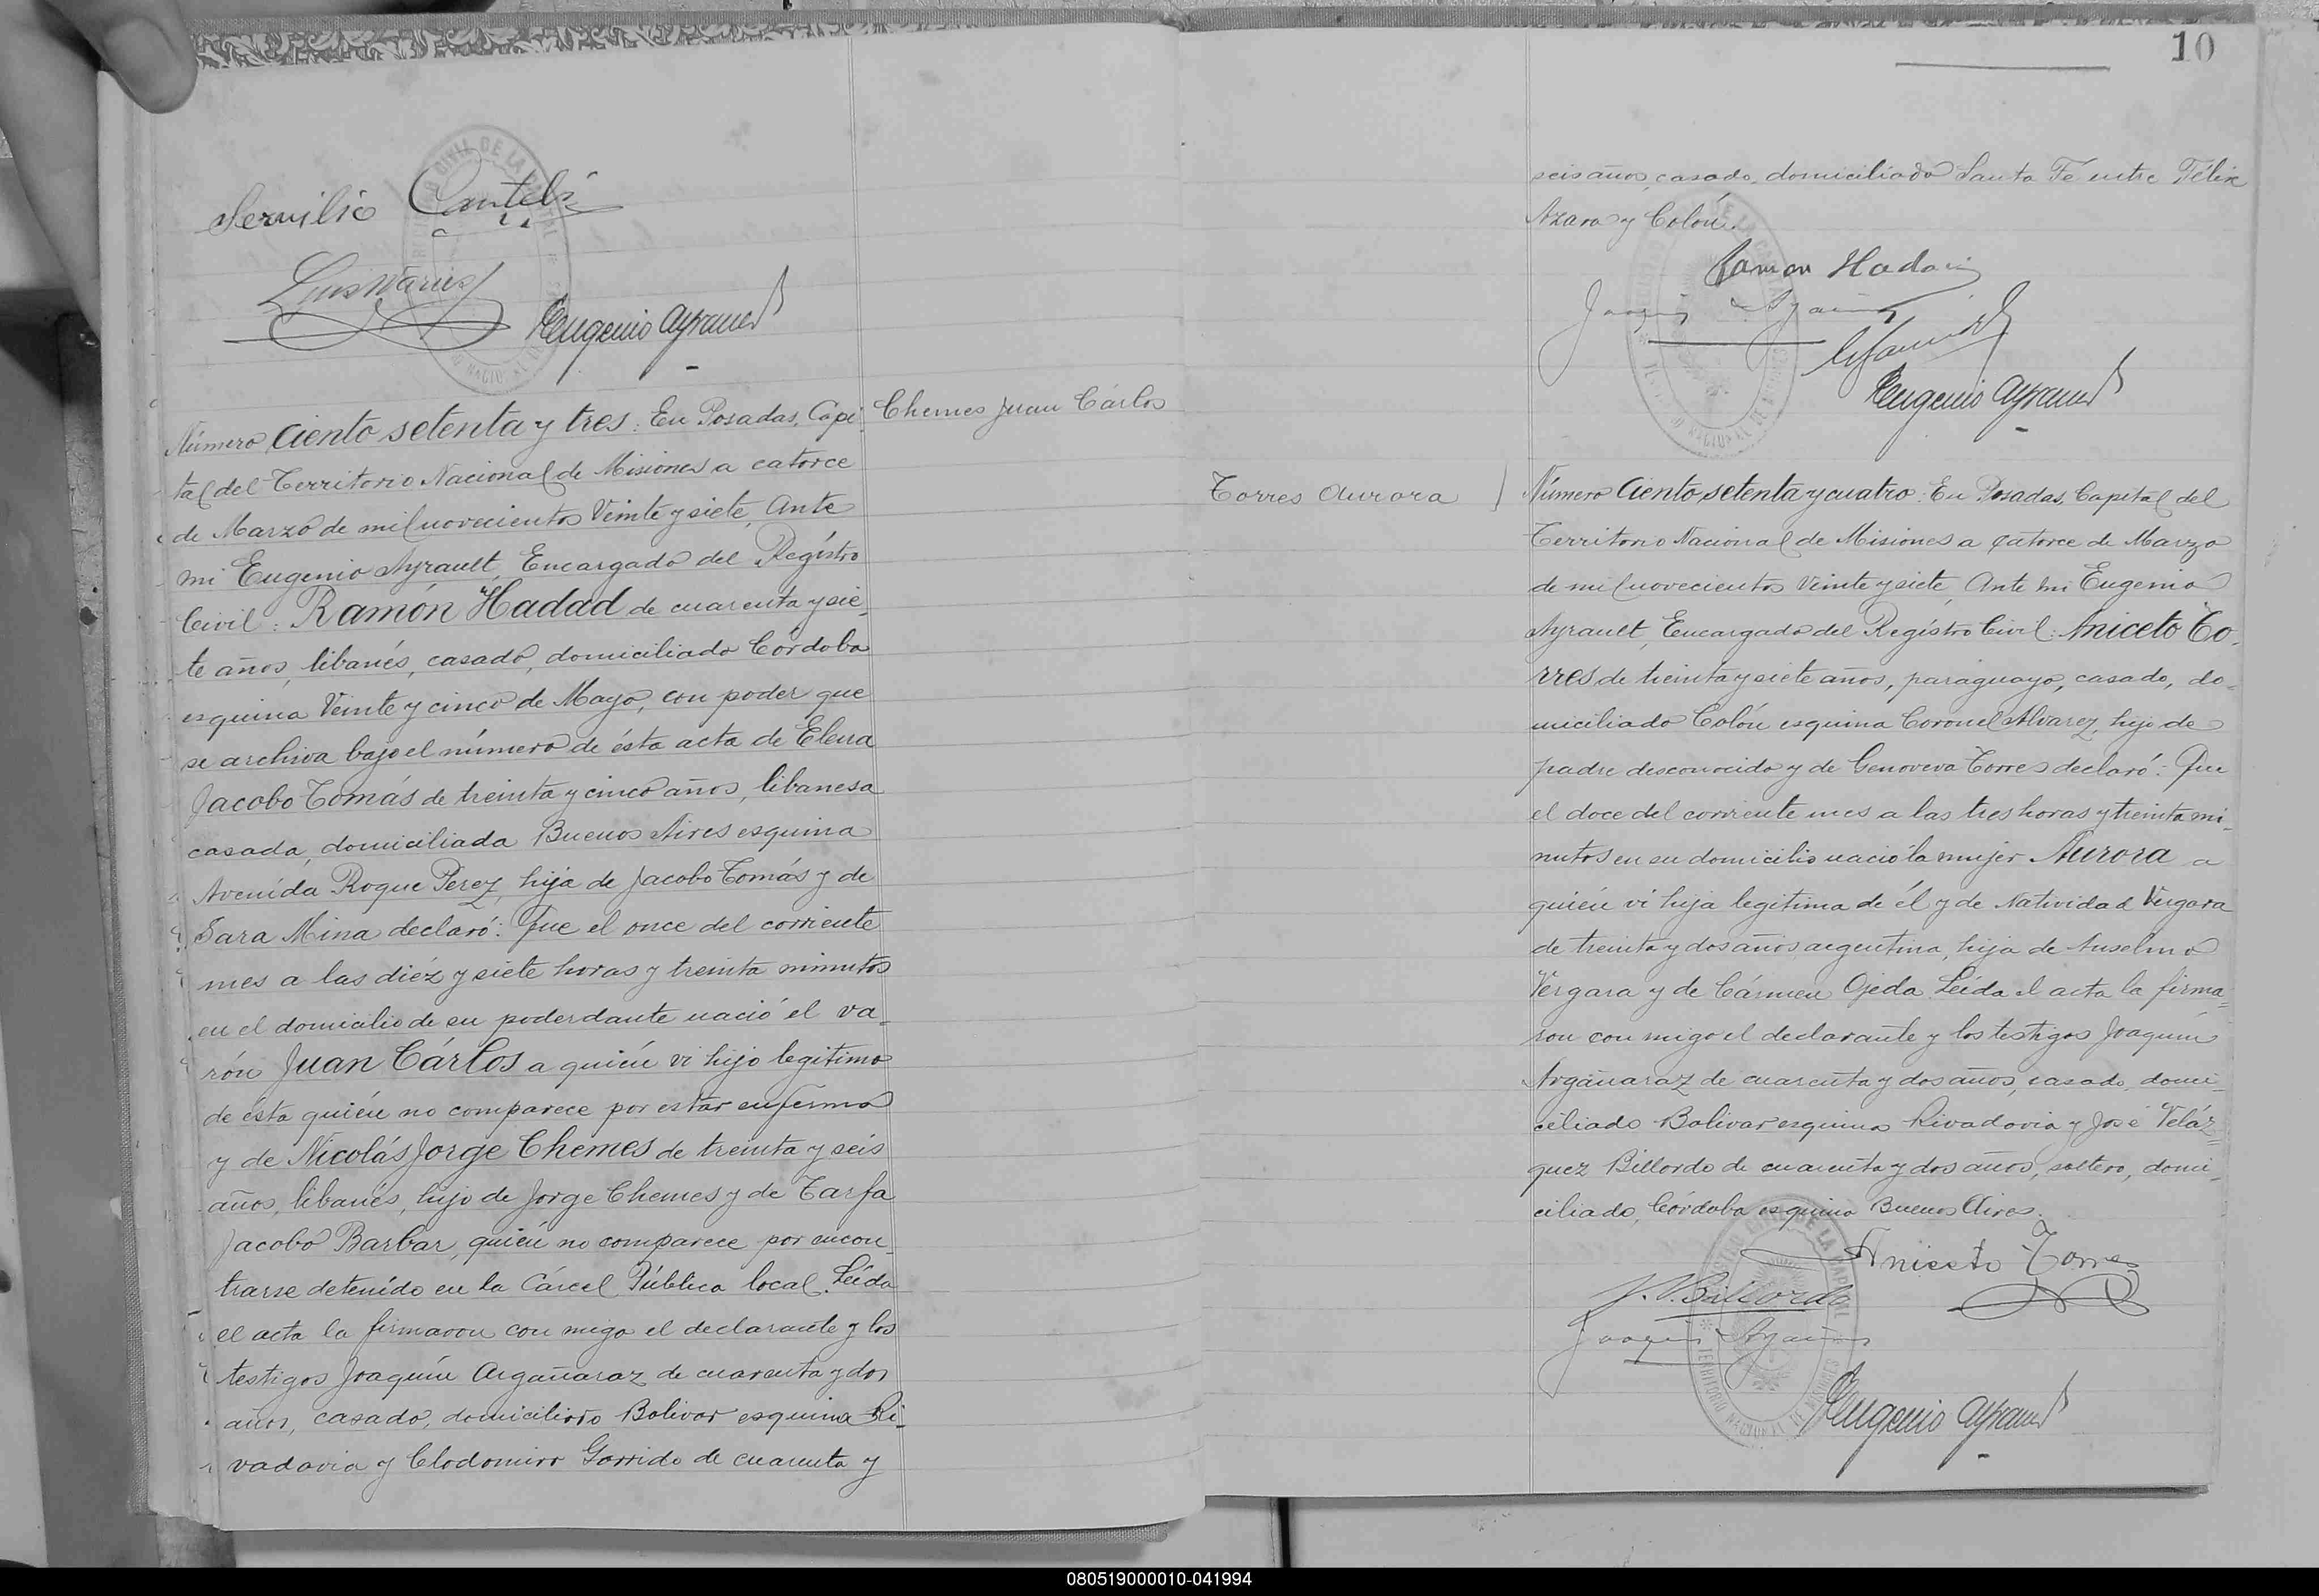 Servilio Cantel
Eugenio Ayrault
Número Ciento setenta y tres: En Posadas, Capi- Chemes Juan Cárlos
tal del Territorio Nacional de Misiones a catorce
de Marzo de mil novecientos Veinte y siete, Ante
mi Eugenio Ayrault, Encargado del Registro
Civil: Ramón Hadad de cuarenta y sie-
te años, libanés, casado, domiciliado Córdoba
esquina Veinte y cinco de Mayo, con poder que
se archiva bajo el número de ésta acta de Elena
Jacobo Tomás de treinta y cinco años, libanesa
casada, domiciliada Buenos Aires esquina
Avenida Roque Perez, hija de Jacobo Tomás y de
Sara Mina declaró: Que el once del corriente
mes a las diéz y siete horas y treinta minutos
en el domicilio de su poderdante nació el va-
rón Juan Cárlos a quién vi hijo legitimo
de ésta quién no comparece por estar enferma
y de Nicolás Jorge Chemes de treinta y seis
años, libanés, hijo de Jorge Chemes y de Tarfa
Jacobo Barbar, quién no comparece por encon-
trarse detenido en la Cárcel Pública local. Leída
el acta la firmaron con migo el declarante y los
testigos Joaquín Argañaraz de cuarenta y dos
años, casado, domiciliado Bolivar esquina Ri-
vadavia y Clodomiro Garrido de cuarenta y
10
seis años, casado, domiciliado Santa Fé entre Félix
Azara y Colón.
Ramon Hadad
Joaquin Argañaraz
Eugenio Ayrault
Torres Aurora
Número Ciento setenta y cuatro: En Posadas, Capital del
Territorio Nacional de Misiones a catorce de Marzo
de mil novecientos Veinte y siete, Ante mi Eugenio
Ayrault, Encargado del Registro Civil: Aniceto To-
rres de treinta y siete años, paraguayo, casado, do-
miciliado Colón esquina Coronel Alvarez, hijo de
padre desconocido y de Genoveva Torres declaró: Que
el doce del corriente mes a las tres horas y treinta mi-
nutos en su domicilio nació la mujer Aurora a
quién vi hija legitima de él y de Natividad Vergara
de treinta y dos años argentina, hija de Anselmo
Vergara y de Cármen Ojeda. Leída el acta la firma-
ron con migo el declarante y los testigos Joaquín
Argañaraz de cuarenta y dos años, casado, domi-
ciliado Bolivar esquina Rivadavia y José Veláz-
quez Billordo de cuarenta y dos años, soltero, domi-
ciliado, Córdoba esquina Buenos Aires.
Aniceto Torres
J. V. Billordo
Joaquin Argañaraz
Eugenio Ayrault
080519000010-041994